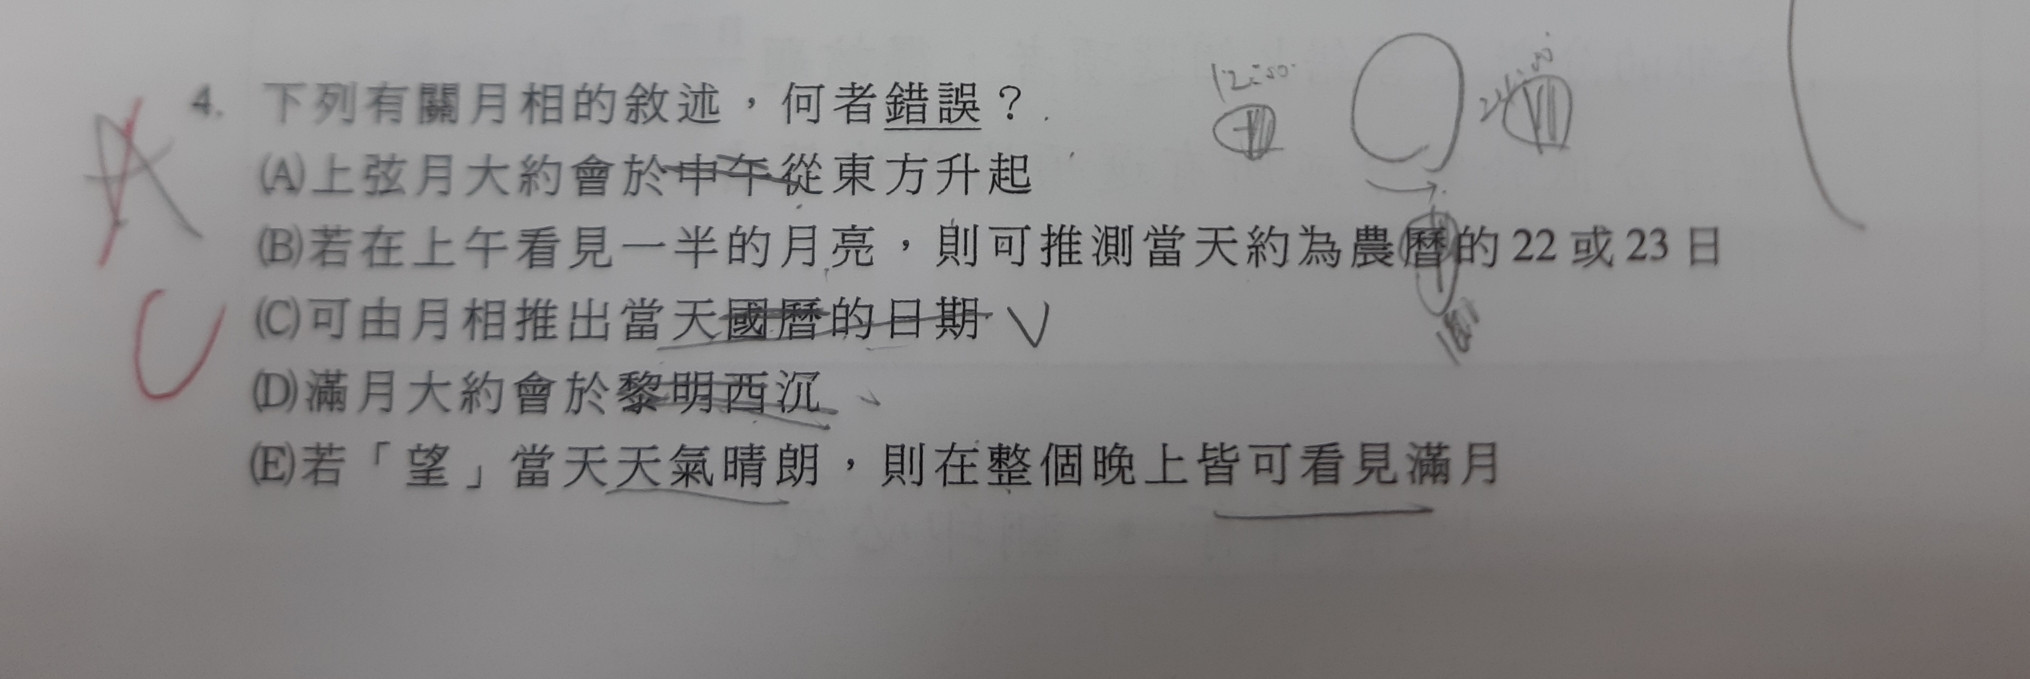 4. 下列有關月相的敘述，何者錯誤？
A
(A)上弦月大約會於中午從東方升起
(B)若在上午看見一半的月亮，則可推測當天約為農曆的22或23日
C
(C)可由月相推出當天國曆的日期
(D)滿月大約會於黎明西沉
(E)若「望」當天天氣晴朗，則在整個晚上皆可看見滿月